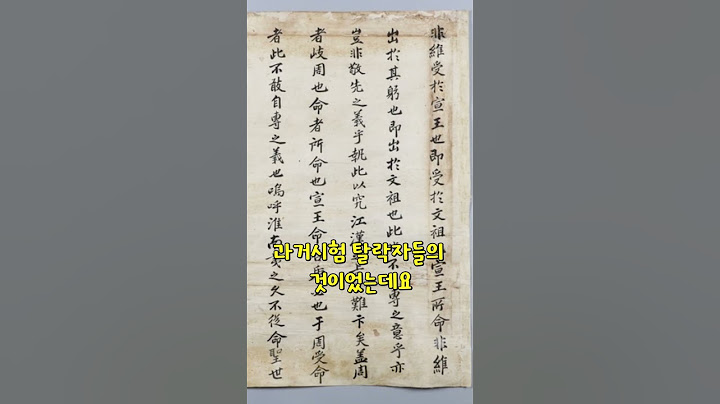 非維受於宣王也即受於文祖宣王所命非維
出於其躬也即出於文祖也此不專之意乎亦
豈非敬先之義乎執此以究江漢難卞矣蓋周
者岐周也命者所命也宣王命也于周受命
者此不敢自專之義也嗚呼淮南夷之久不從命聖世
과거시험 탈락자들의
것이었는데요